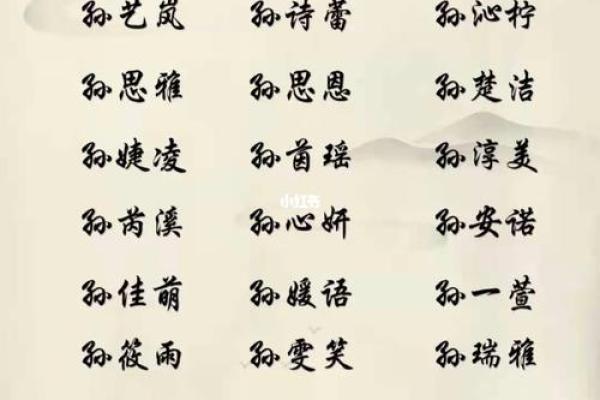 孙艺岚 孙诗蕾 孙沁柠
孙思雅 孙思恩 孙楚洁
孙婕凌 孙茵瑶 孙淳美
小红书
孙芮溪 孙心妍 孙安诺
孙佳萌 孙媛语 孙一萱
孙筱雨 孙雯笑 孙瑞雅